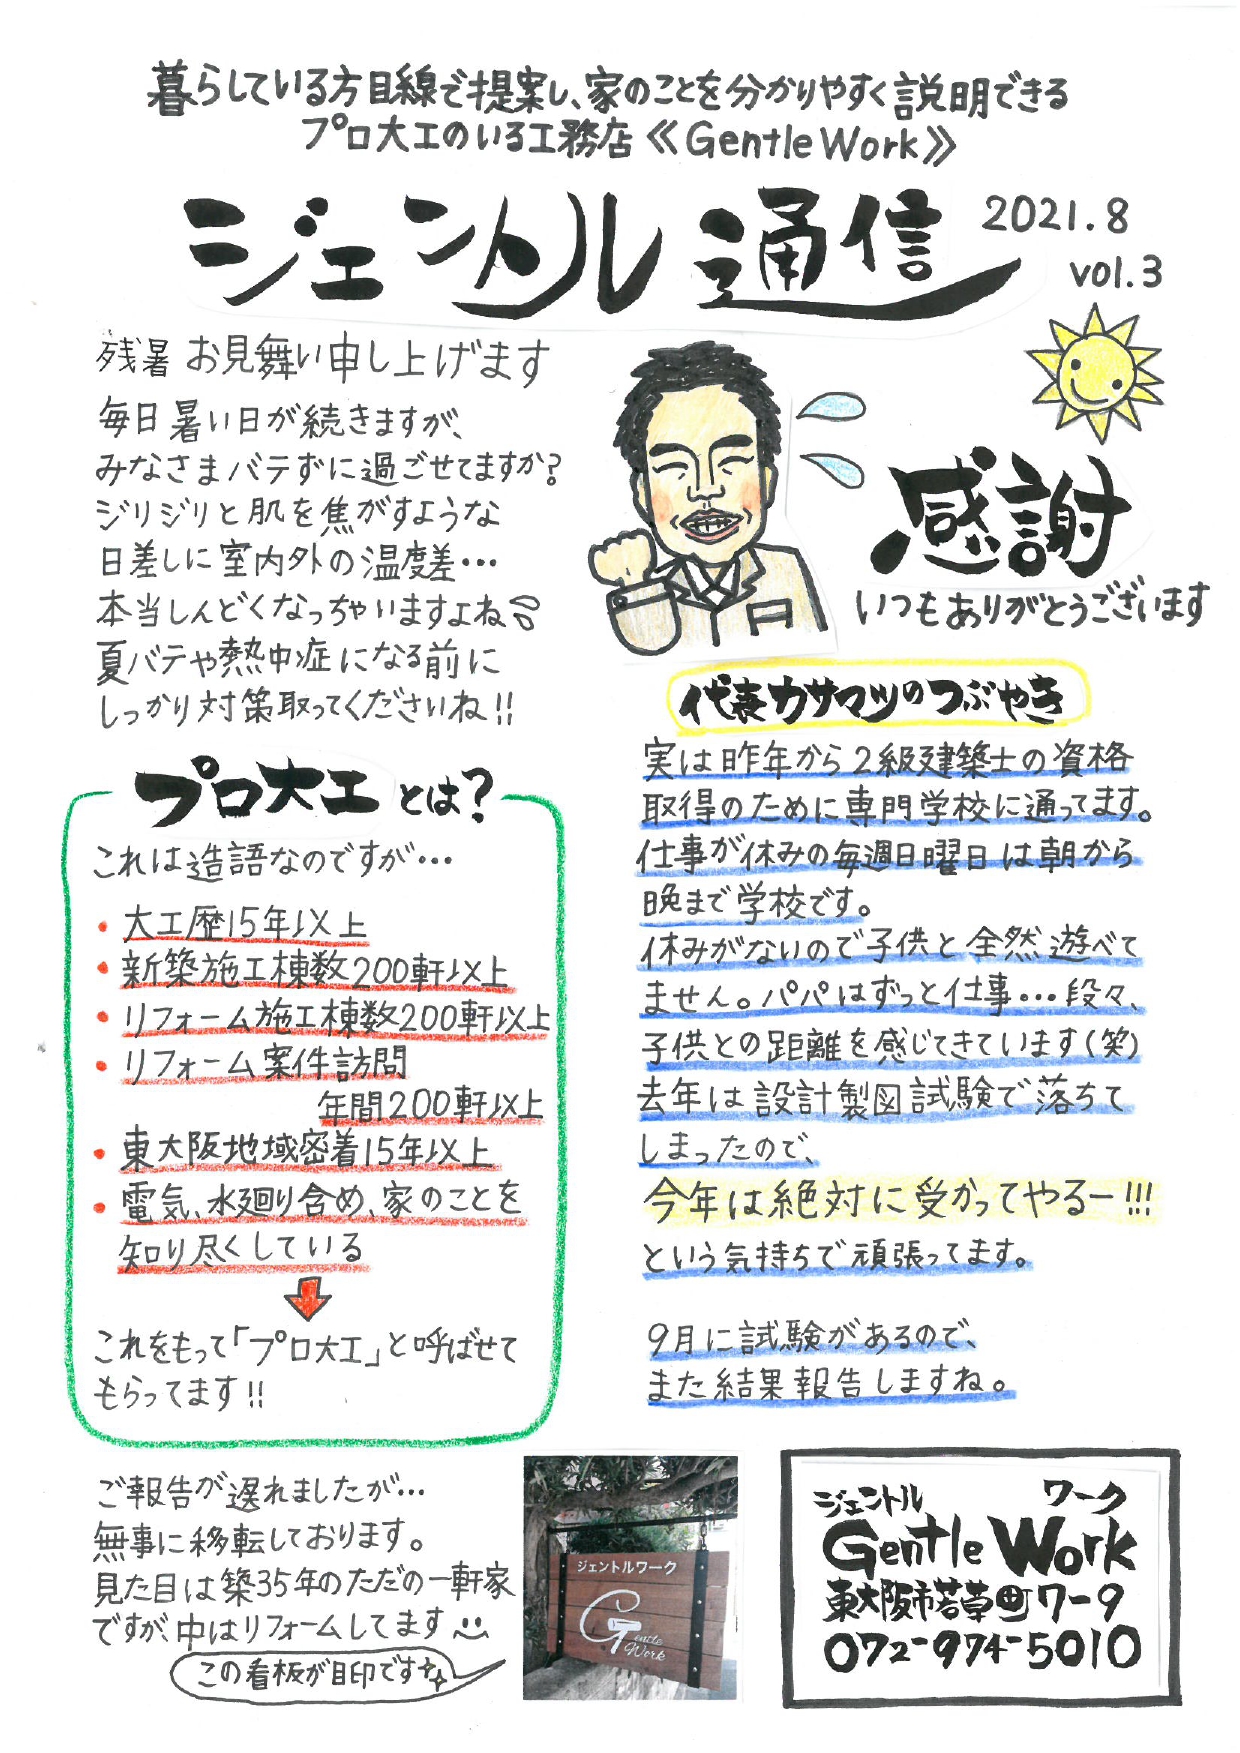 暮らしている方目線で提案し、家のことを分かりやすく説明できる
プロ大工のいる工務店≪Gentle Work≫
ジェントル通信
2021.8
vol.3
残暑お見舞い申し上げます
毎日暑い日が続きますが、
みなさまバテずに過ごせてますか?
ジリジリと肌を焦がすような
日差しに室内外の温度差…
本当しんどくなっちゃいますよね
夏バテや熱中症になる前に
しっかり対策取ってくださいね!!
感謝
いつもありがとうございます
プロ大工とは?
これは造語なのですが…
・大工歴15年以上
・新築施工棟数200軒以上
・リフォーム施工棟数200軒以上
・リフォーム案件訪問
年間200軒以上
・東大阪地域密着15年以上
・電気、水廻り含め、家のことを
知り尽くしている
これをもって「プロ大工」と呼ばせて
もらってます!!
代表カサマツのつぶやき
実は昨年から2級建築士の資格
取得のために専門学校に通ってます。
仕事が休みの毎週日曜日は朝から
晩まで学校です。
休みがないので子供と全然遊べて
ません。パパはずっと仕事…段々、
子供との距離を感じてきています(笑)
去年は設計製図試験で落ちて
しまったので、
今年は絶対に受かってやるー!!!
という気持ちで頑張ってます。
9月に試験があるので、
また結果報告しますね。
ご報告が遅れましたが…
無事に移転しております。
見た目は築35年のただの一軒家
ですが、中はリフォームしてます
この看板が目印です
ジェントルワーク
Gentle
Work
ジェントル ワーク
Gentle Work
東大阪市若草町7-9
072-974-5010